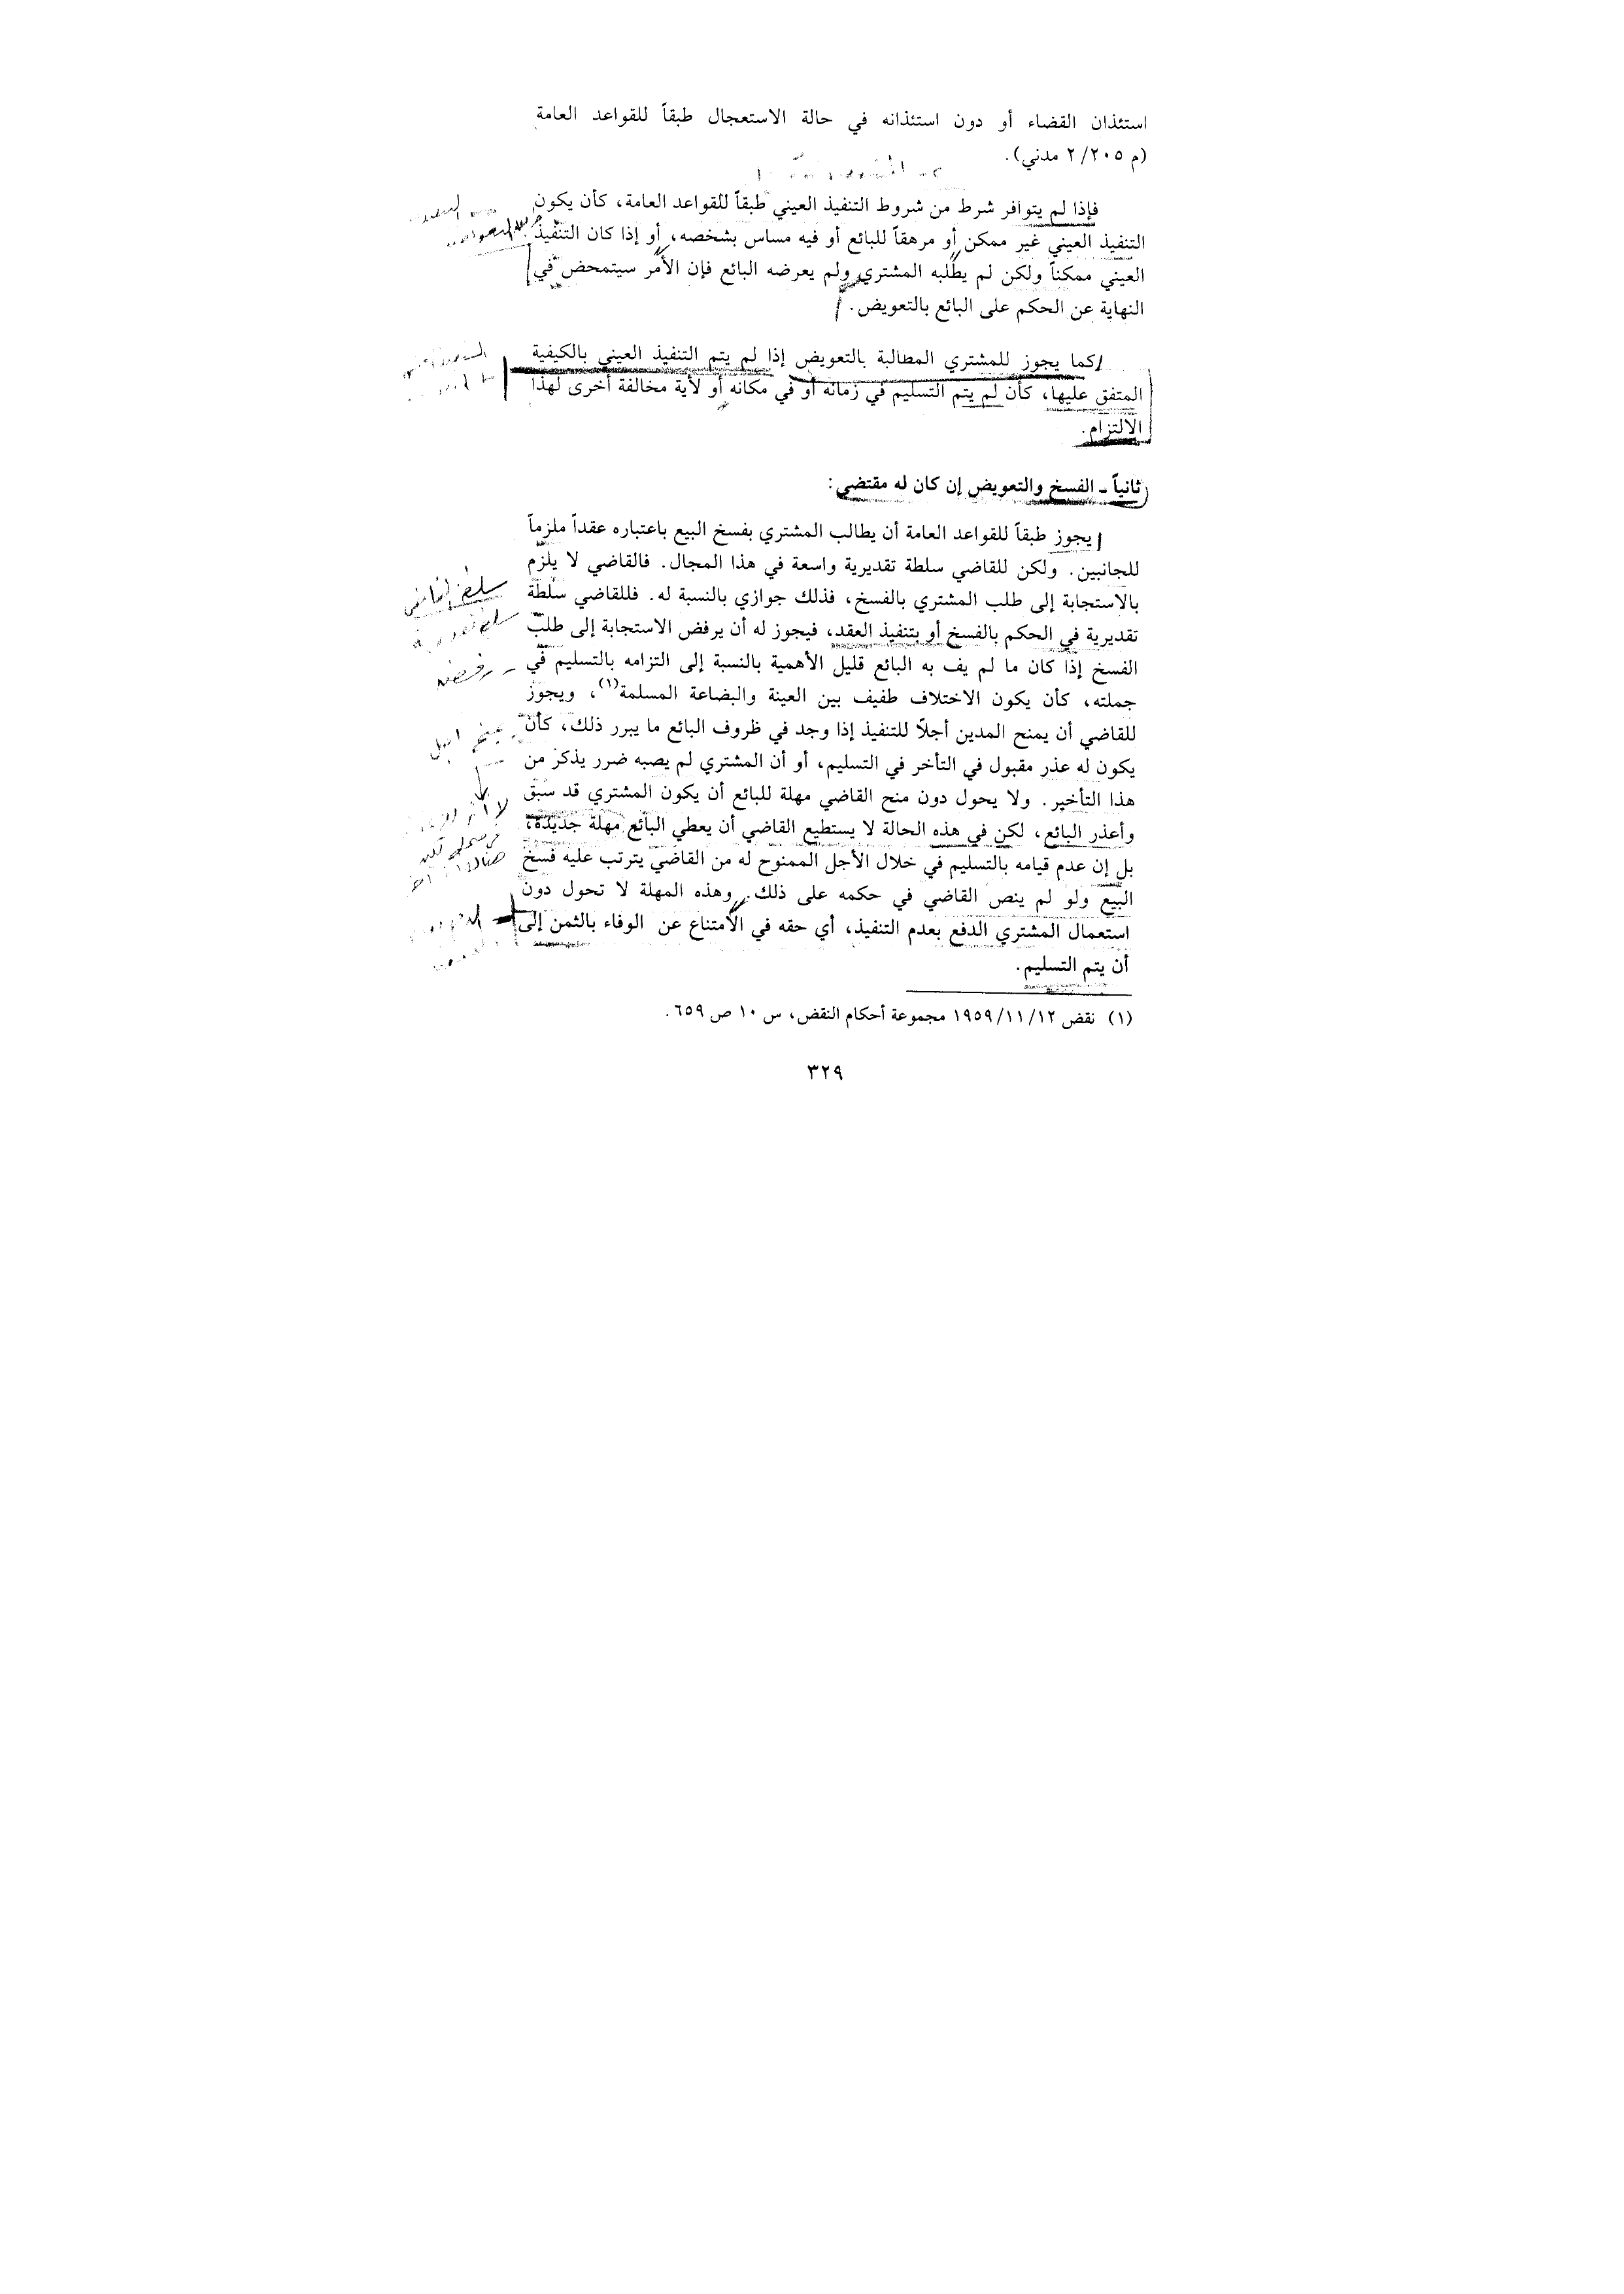 استئذان القضاء أو دون استئذانه في حالة الاستعجال طبقاً للقواعد العامة
(م ٢/٢٠٥ مدني).
فإذا لم يتوافر شرط من شروط التنفيذ العيني طبقاً للقواعد العامة، كأن يكون
التنفيذ العيني غير ممكن أو مرهقاً للبائع أو فيه مساس بشخصه، أو إذا كان التنفيذ
العيني ممكناً ولكن لم يطلبه المشتري ولم يعرضه البائع فإن الأمر سيتمحض في
النهاية عن الحكم على البائع بالتعويض.
كما يجوز للمشتري المطالبة بالتعويض إذا لم يتم التنفيذ العيني بالكيفية
المتفق عليها، كأن لم يتم التسليم في زمانه أو في مكانه أو لأية مخالفة أخرى لهذا
الالتزام.
ثانياً ـ الفسخ والتعويض إن كان له مقتضى:
يجوز طبقاً للقواعد العامة أن يطالب المشتري بفسخ البيع باعتباره عقداً ملزماً
للجانبين. ولكن للقاضي سلطة تقديرية واسعة في هذا المجال. فالقاضي لا يلزم
بالاستجابة إلى طلب المشتري بالفسخ، فذلك جوازي بالنسبة له. فللقاضي سلطة
سلطة القاضي
تقديرية في الحكم بالفسخ أو بتنفيذ العقد، فيجوز له أن يرفض الاستجابة إلى طلب
الفسخ إذا كان ما لم يف به البائع قليل الأهمية بالنسبة إلى التزامه بالتسليم في
جملته، كأن يكون الاختلاف طفيف بين العينة والبضاعة المسلمة(١)، ويجوز
للقاضي أن يمنح المدين أجلاً للتنفيذ إذا وجد في ظروف البائع ما يبرر ذلك، كأن
يكون له عذر مقبول في التأخر في التسليم، أو أن المشتري لم يصبه ضرر يذكر من
هذا التأخير. ولا يحول دون منح القاضي مهلة للبائع أن يكون المشتري قد سبق
وأعذر البائع، لكن في هذه الحالة لا يستطيع القاضي أن يعطي البائع مهلة جديدة،
بل إن عدم قيامه بالتسليم في خلال الأجل الممنوح له من القاضي يترتب عليه فسخ
البيع ولو لم ينص القاضي في حكمه على ذلك. وهذه المهلة لا تحول دون
استعمال المشتري الدفع بعدم التنفيذ، أي حقه في الأمتناع عن الوفاء بالثمن إلى
أن يتم التسليم.
(١) نقض ١٩٥٩/١١/١٢ مجموعة أحكام النقض، س ١٠ ص ٦٥٩.
٣٢٩